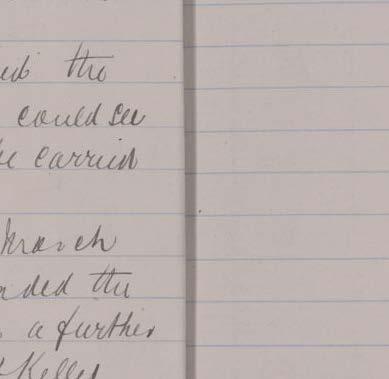 the
could see
carried
March
ded the
a further
Kelley